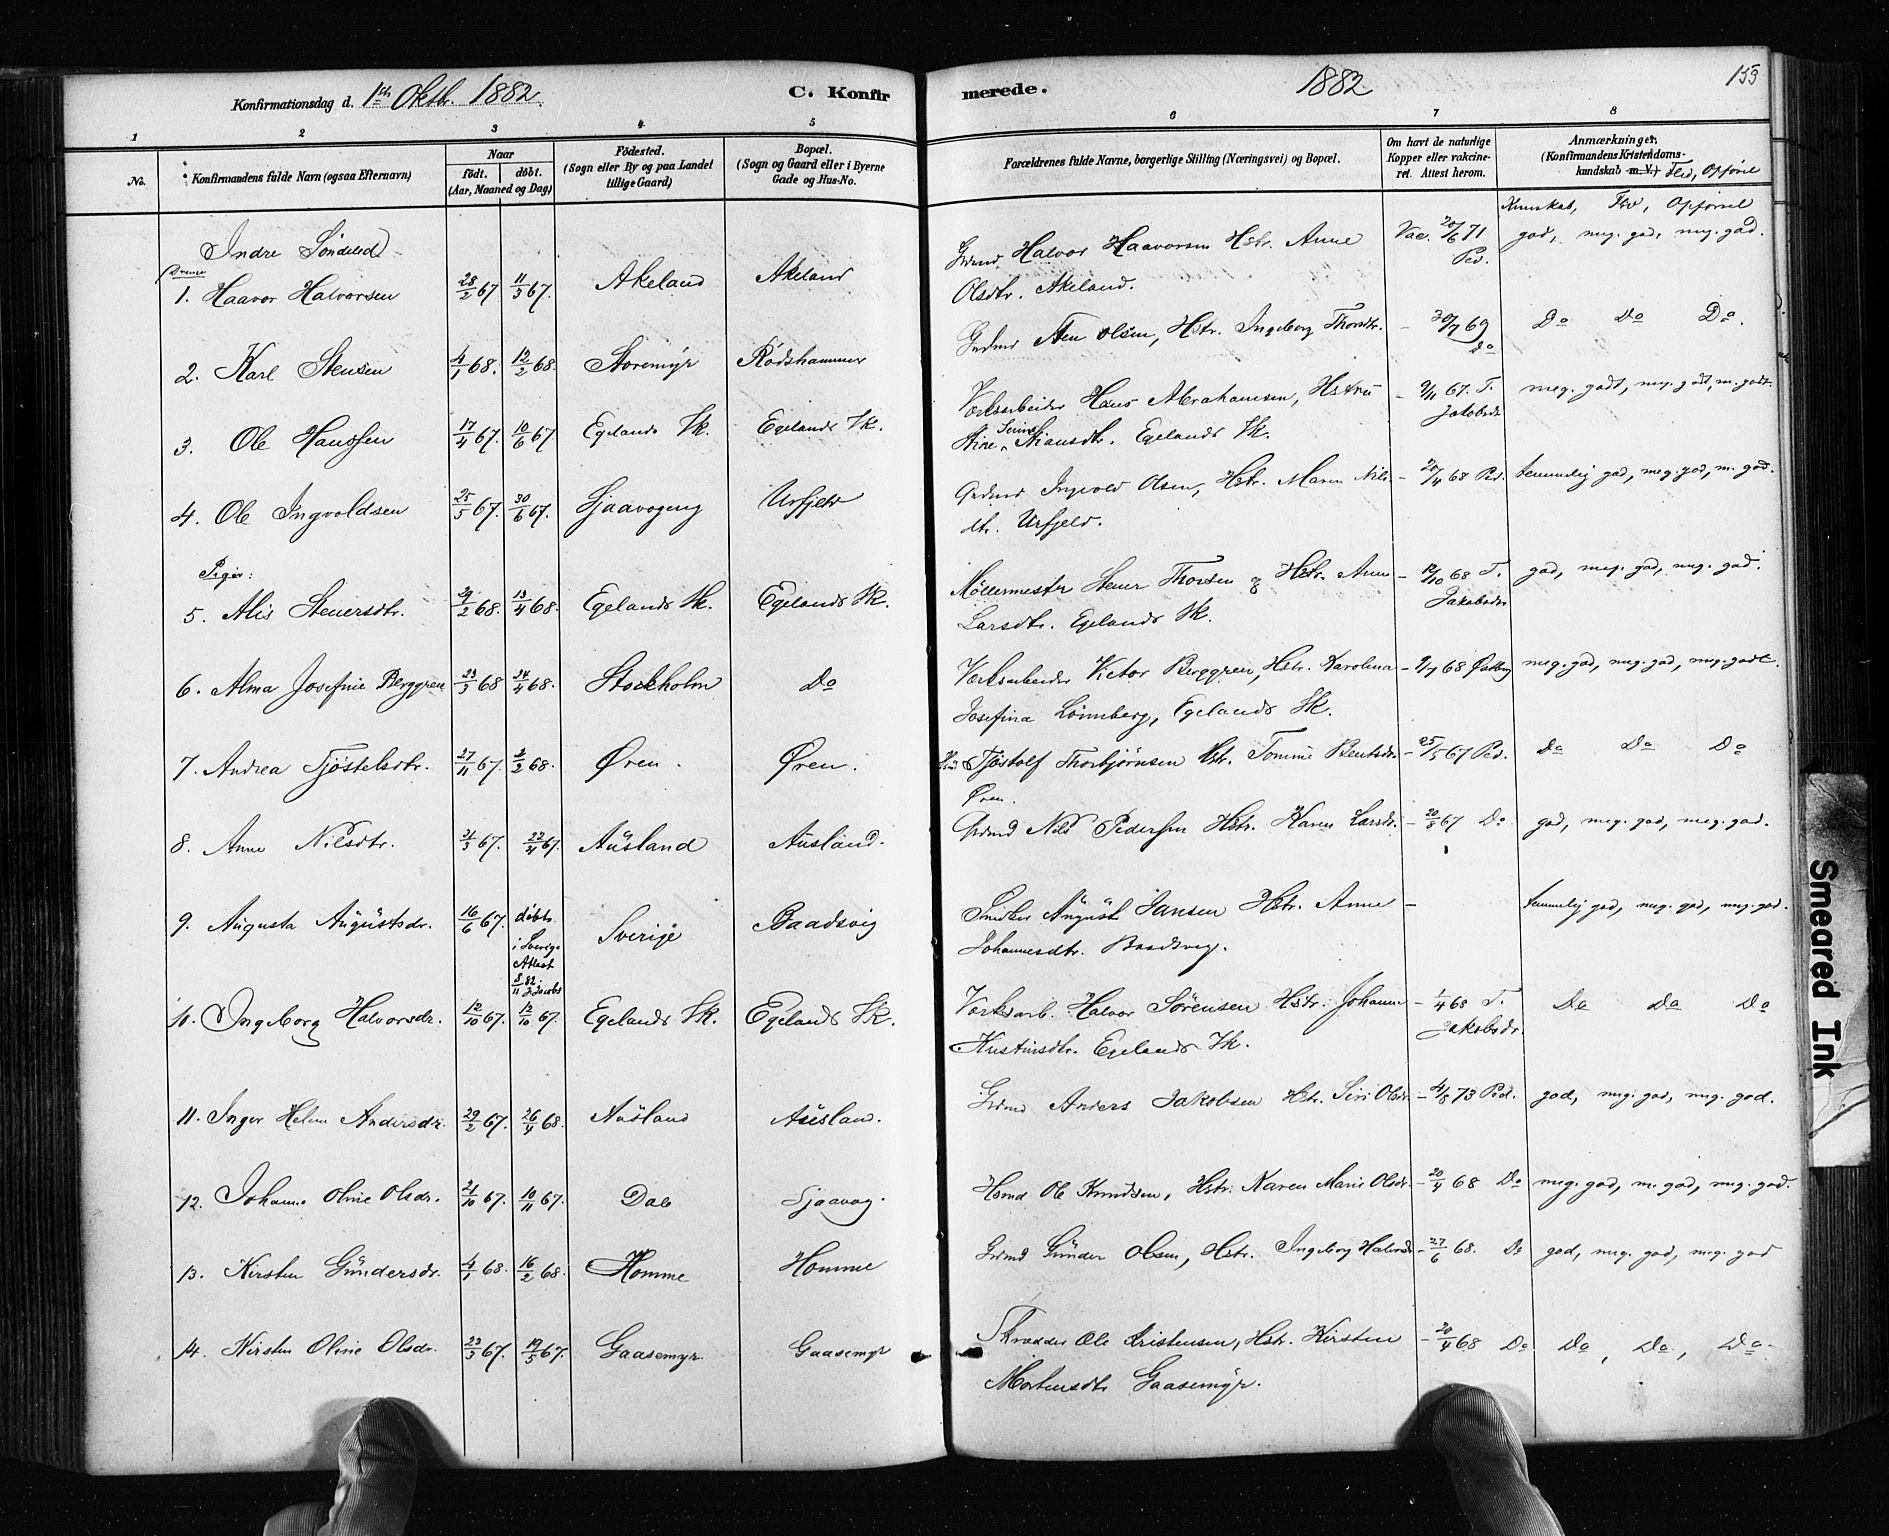 Konfirmationsdag d. 1ste Oktbr. 1882. C. Konfirmerede. 1882 153
1 2 3 4 5 6 7 8
No. Konfirmandens fulde Navn (ogsaa Efternavn) Naar født. døbt. (Aar, Maaned og Dag) Fødested. (Sogn eller By og paa Landet tillige Gaard) Bopæl. (Sogn og Gaard eller i Byerne Gade og Hus-No. Forældrenes fulde Navne, borgerlige Stilling (Næringsvei) og Bopæl. Om havt de naturlige Kopper eller vakcineret. Attest herom. Anmærkninger. (Konfirmandens Kristendomskundskab m. V.) Flid, Opførsel
Kunskab, Flid, Opførsel
Indre Søndeled
Drenge
1. Haavor Halvorsen 28/2 67 11/3 67. Akeland Akeland Grdmd Halvor Haavorsen Hstr. Anne Vac. 20/6 71 Ped. god, meg. god, meg. god.
Olsdtr. Akeland.
2. Karl Stensen 4/1 68. 12/2 68. Storemyr Rødshammer Grdmd Sten Olsen, Hstr. Ingeborg Thordtr. - 30/7 69 Do Do Do Do.
3. Ole Hanssen 17/4 67. 10/6 67 Egelands Vk. Egelands Vk. Værksarbeider Hans Abrahamsen, Hstru - 9/11 67. T. Jakobsdr meg. godt, meg. godt, m. godt.
Stine Serine Stiansdtr. Egelands Vk.
4. Ole Ingvoldsen 25/5 67. 30/6 67. Sjaavogeng Urfjeld Grdmd Ingvold Olsen, Hstr. Maren Nils- - 20/4 68 Ped. temmelig god, meg. god, m. god.
dtr. Urfjeld.
Piger:
5. Alis Stenersdtr. 29/2 68. 13/4 68. Egelands Vk. Egelands Vk. Møllermester Stener Thorsen & Hstr. Anne - 12/10 68 T. Jakobsdr god, meg. god, meg. god.
Larsdtr. Egelands Vk.
6. Alma Josefine Berggren 23/3 68 24/4 68. Stockholm Do Værksarbeider Victor Berggren, Hstr. Karolina - 9/7 68 meg. god, meg. god, meg. godt.
Josefina Lönnberg, Egelands Vk.
7. Andrea Tjøstelsdtr. 27/11 67. 2/2 68. Øren. Øren. Tjøstolf Thorbjørnsen Hstr. Tomine Bentsdr. - 25/5 67 Ped. Do Do Do
Øren.
8. Anne Nilsdtr. 21/3 67. 22/4 67. Ausland Ausland. Grdmd Nils Pedersen Hstr. Karen Larsdr. - 20/8 67 Do god, meg. god, meg. god.
9. Augusta Augustsdr. 16/6 67. døbt i Sverige Attest 8/11 82. J. Jacobs Sverige Baadsvig Smeker August Jansen Hstr. Anne - temmelig god, meg. god, meg. god.
Johannesdtr. Baadsvig.
10. Ingeborg Halvorsdr. 12/10 67. 12/10 67. Egelands Vk. Egelands Vk. Værksarb. Halvor Sørensen Hstr. Johanne - 1/4 68 T. Jakobsdr. Do Do Do
Kristinsdtr. Egelands Vk.
11. Inger Helene Andersdr. 29/2 67. 26/4 68. Ausland Ausland. Grdmd Anders Jakobsen Hstr. Siri Olsdr. - 4/8 73 Ped. god, meg. god, meg. god.
12. Johanne Oline Olsdr. 21/10 67. 10/11 67. Dale Sjaavog. Hsmd Ole Knudsen, Hstr. Karen Marie Olsdr. - 20/4 68 Do meg. god, m. god, meg. god.
13. Kirsten Gundersdr. 4/1 68. 16/2 68. Homme Homme Grdmd Gunder Olsen, Hstr. Ingeborg Halvorsdr - 27/6 68. Do god, meg. god, meg. god
14. Kirsten Oline Olsdr. 23/3 67. 19/5 67. Gaasemyr. Gaasemyr Skrædder Ole Kristensen, Hstr. Kirsten - 20/4 68 Do Do, Do, Do.
Mortensdtr Gaasemyr.
Smeared Ink